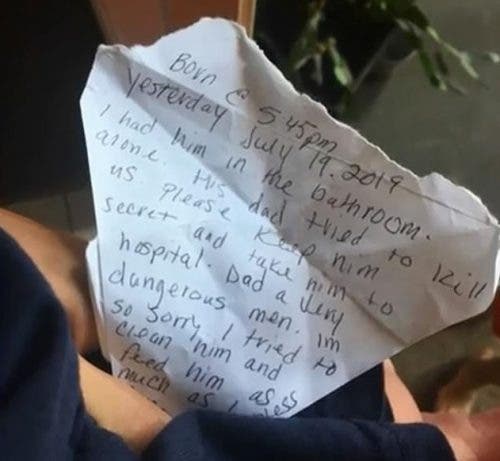 Born @ 545pm
Yesterday July 19. 2019
I had him in the bathroom.
alone. His dad tried to kill
us. Please keep him
secret and take him to
hospital. Dad a very
dangerous men. Im
so sorry I tried to
clean him and
feed him as
much as I